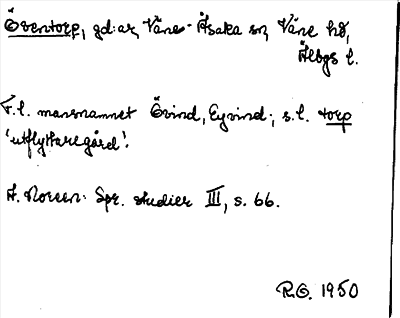 Öventorp, gd:ar, Väne-Åsaka sn, Väne hd,
Älbgs l.
F.l. mansnamnet Övind, Eyvind; s.l. torp
'utflyttaregård'.
A. Noreen: Spr. studier III, s. 66.
R.G. 1950